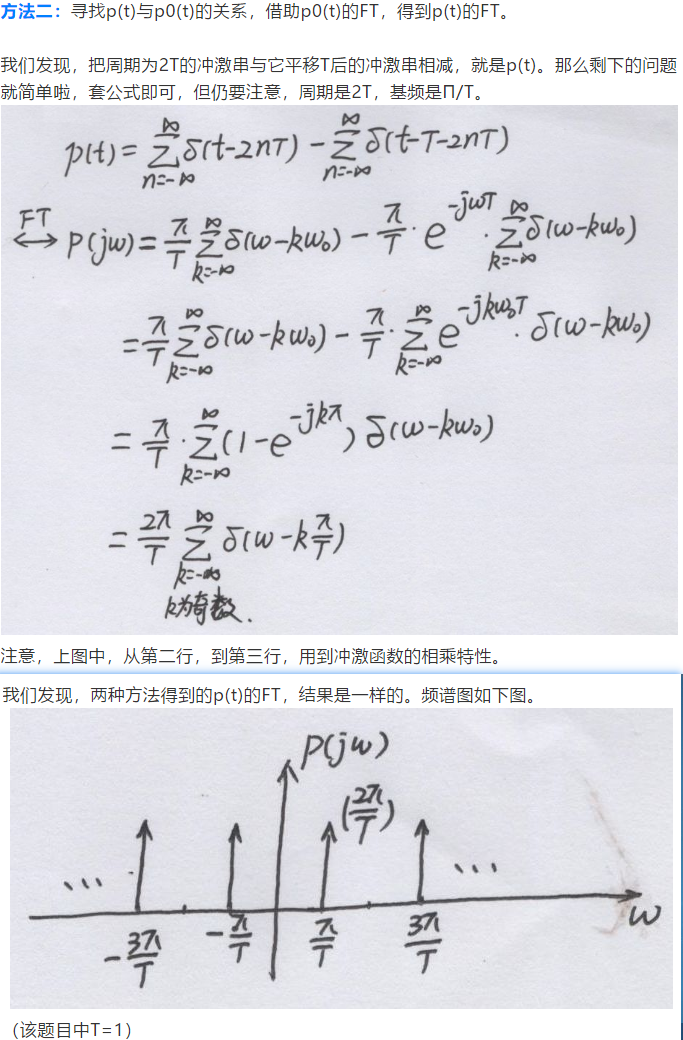 方法二：寻找p(t)与p0(t)的关系，借助p0(t)的FT，得到p(t)的FT。
我们发现，把周期为2T的冲激串与它平移T后的冲激串相减，就是p(t)。那么剩下的问题
就简单啦，套公式即可，但仍要注意，周期是2T，基频是Π/T。
p(t)=∑_{n=-∞}^{∞}δ(t-2nT)-∑_{n=-∞}^{∞}δ(t-T-2nT)
FT ↔ P(jω)=π/T ∑_{k=-∞}^{∞}δ(ω-kω₀)-π/T·e^{-jωT}·∑_{k=-∞}^{∞}δ(ω-kω₀)
=π/T ∑_{k=-∞}^{∞}δ(ω-kω₀)-π/T·∑_{k=-∞}^{∞}e^{-jkω₀T}·δ(ω-kω₀)
=π/T·∑_{k=-∞}^{∞}(1-e^{-jkπ})δ(ω-kω₀)
=2π/T ∑_{k=-∞}^{∞}δ(ω-kπ/T)
k为奇数.
注意，上图中，从第二行，到第三行，用到冲激函数的相乘特性。
我们发现，两种方法得到的p(t)的FT，结果是一样的。频谱图如下图。
P(jω)
(2π/T)
... ...
-3π/T -π/T π/T 3π/T ω
（该题目中T=1）